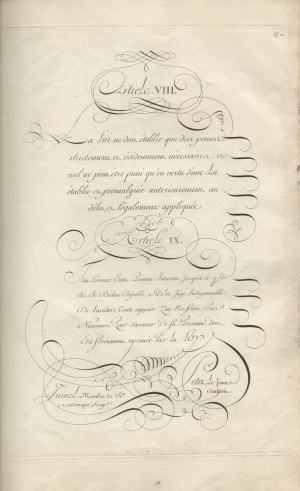 Article VIII.
La Loi ne doit établir que des peines
strictement et évidemment necessaires, et
nul ne peut être puni qu'en vertu d'une Loi
établie et promulguée anterieurement au
délit, et légalement appliquée.
Article IX.
Tout Homme Etant Présumé Innocent Jusqu'à ce qu'il
Ait Eté Déclaré Coupable, S'il Est Jugé Indispensable
De L'arrêter, Toute rigueur Qui Ne Serait Pas
Nécessaire Pour s'assurer De Sa Personne doit
Etre Sévèrement réprimée Par la Loy
Membre de
le Jeune
Sculpsit